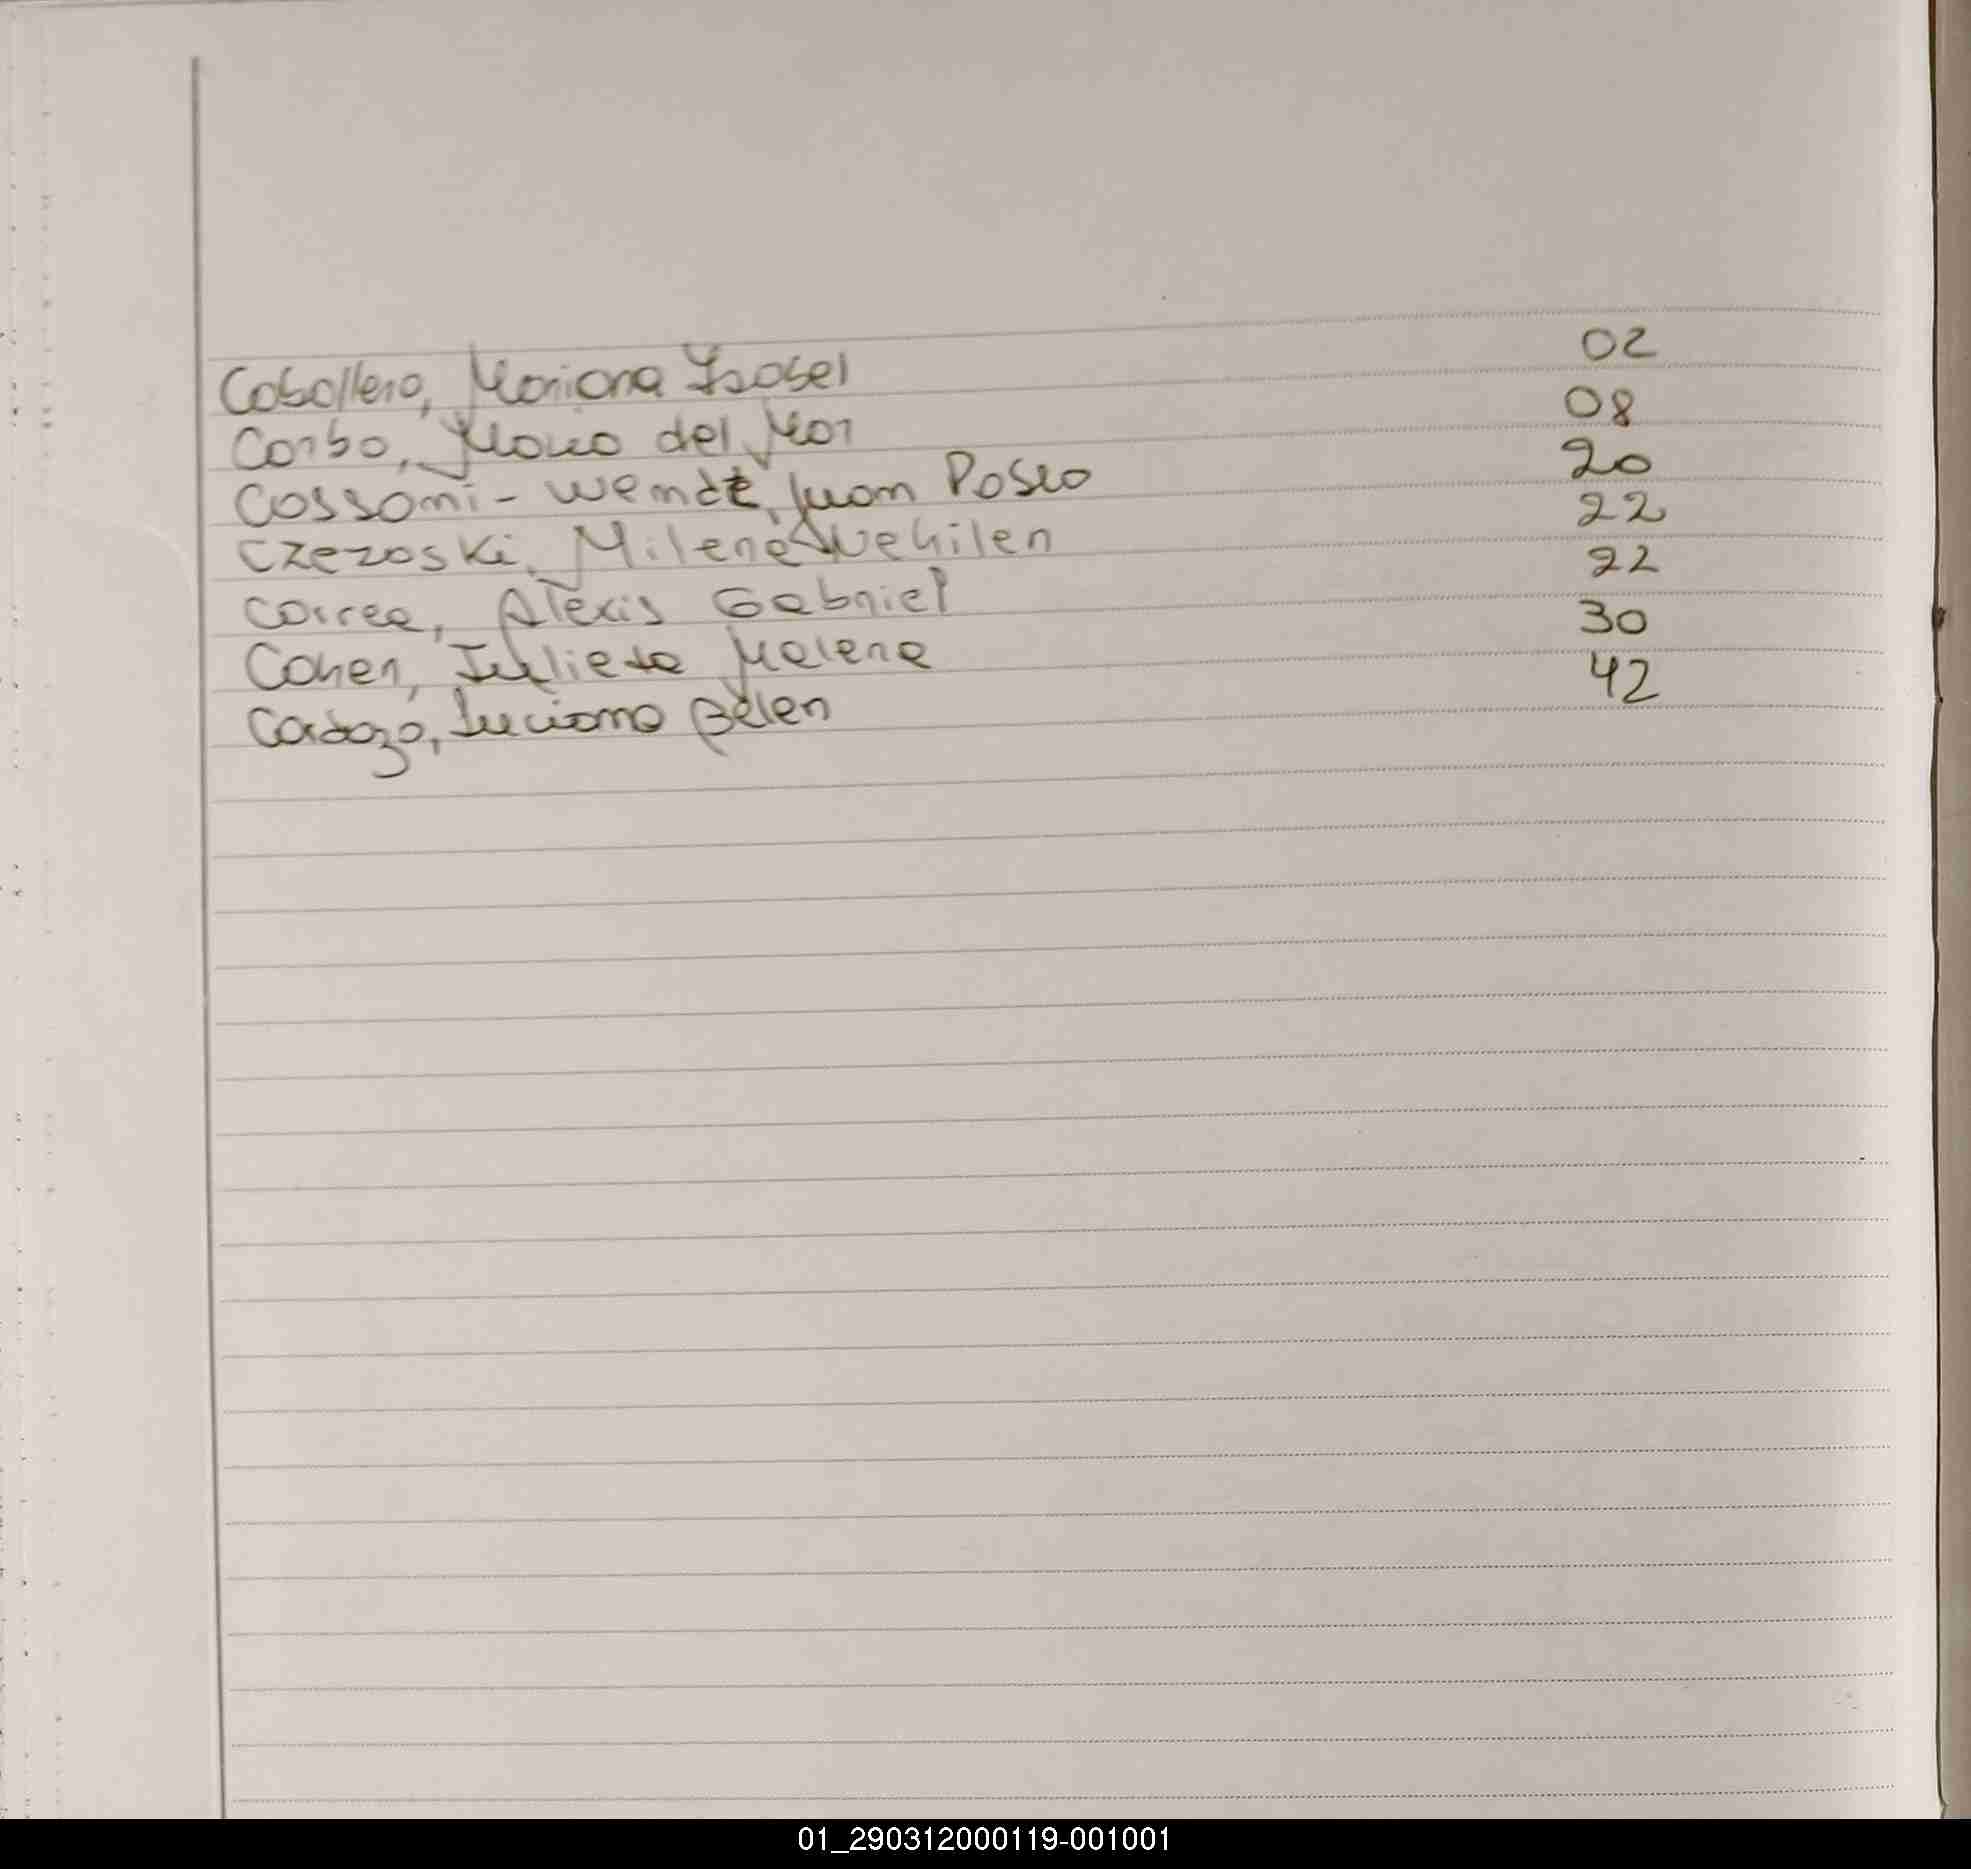 Caballero, Mariana Isabel 02
Carbo, Maria del Mar 08
Cassani - Wendt, Juan Pablo 20
Czezoski, Milene Nehilen 22
Correa, Alexis Gabriel 22
Cohen, Julieta Malena 30
Cardozo, Luciana Belen 42
01_290312000119-001001